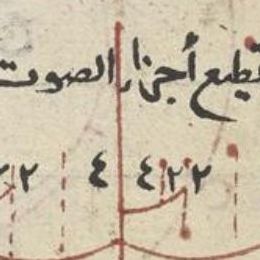 قطيع أجزاء الصوت
٢ ٢ ٤ ٤ ٢ ٢